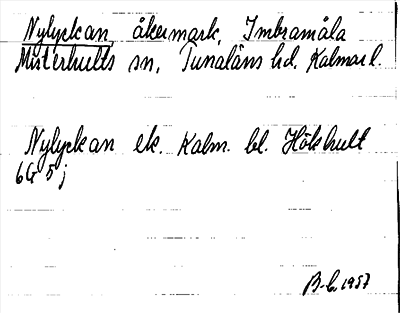 Nylyckan, åkermark, Imbramåla
Misterhults sn, Tunaläns hd. Kalmar l.
Nylyckan ek. Kalm. bl. Hökhult
6G 5j
B-L 1957